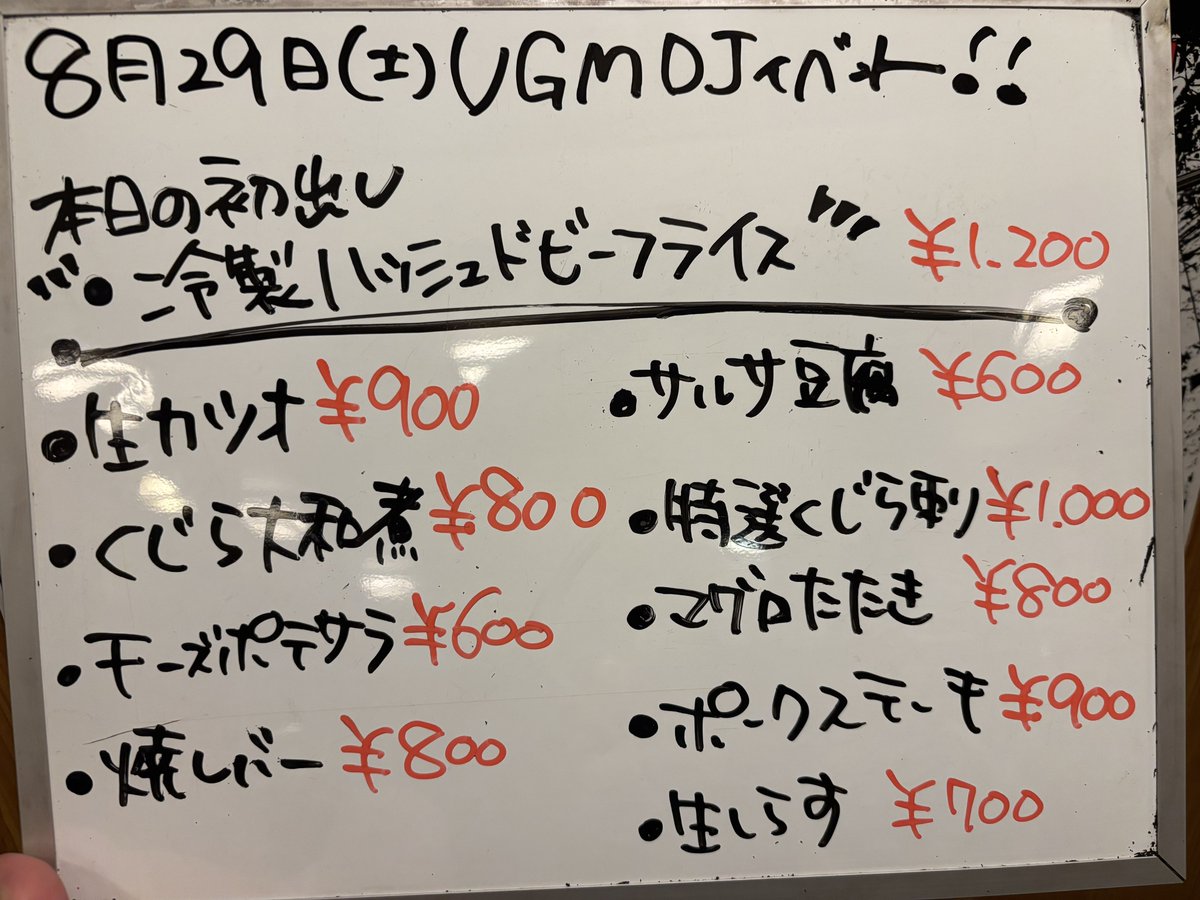 8月29日(土)VGMDJイベント!!
本日の初出し
・冷製ハッシュドビーフライス ¥1.200
・生カツオ ¥900
・くじら大和煮 ¥800
・チーズポテサラ ¥600
・焼レバー ¥800
・サルサ豆腐 ¥600
・特選くじら刺り ¥1.000
・マグロたたき ¥800
・ポークステーキ ¥900
・生しらす ¥700